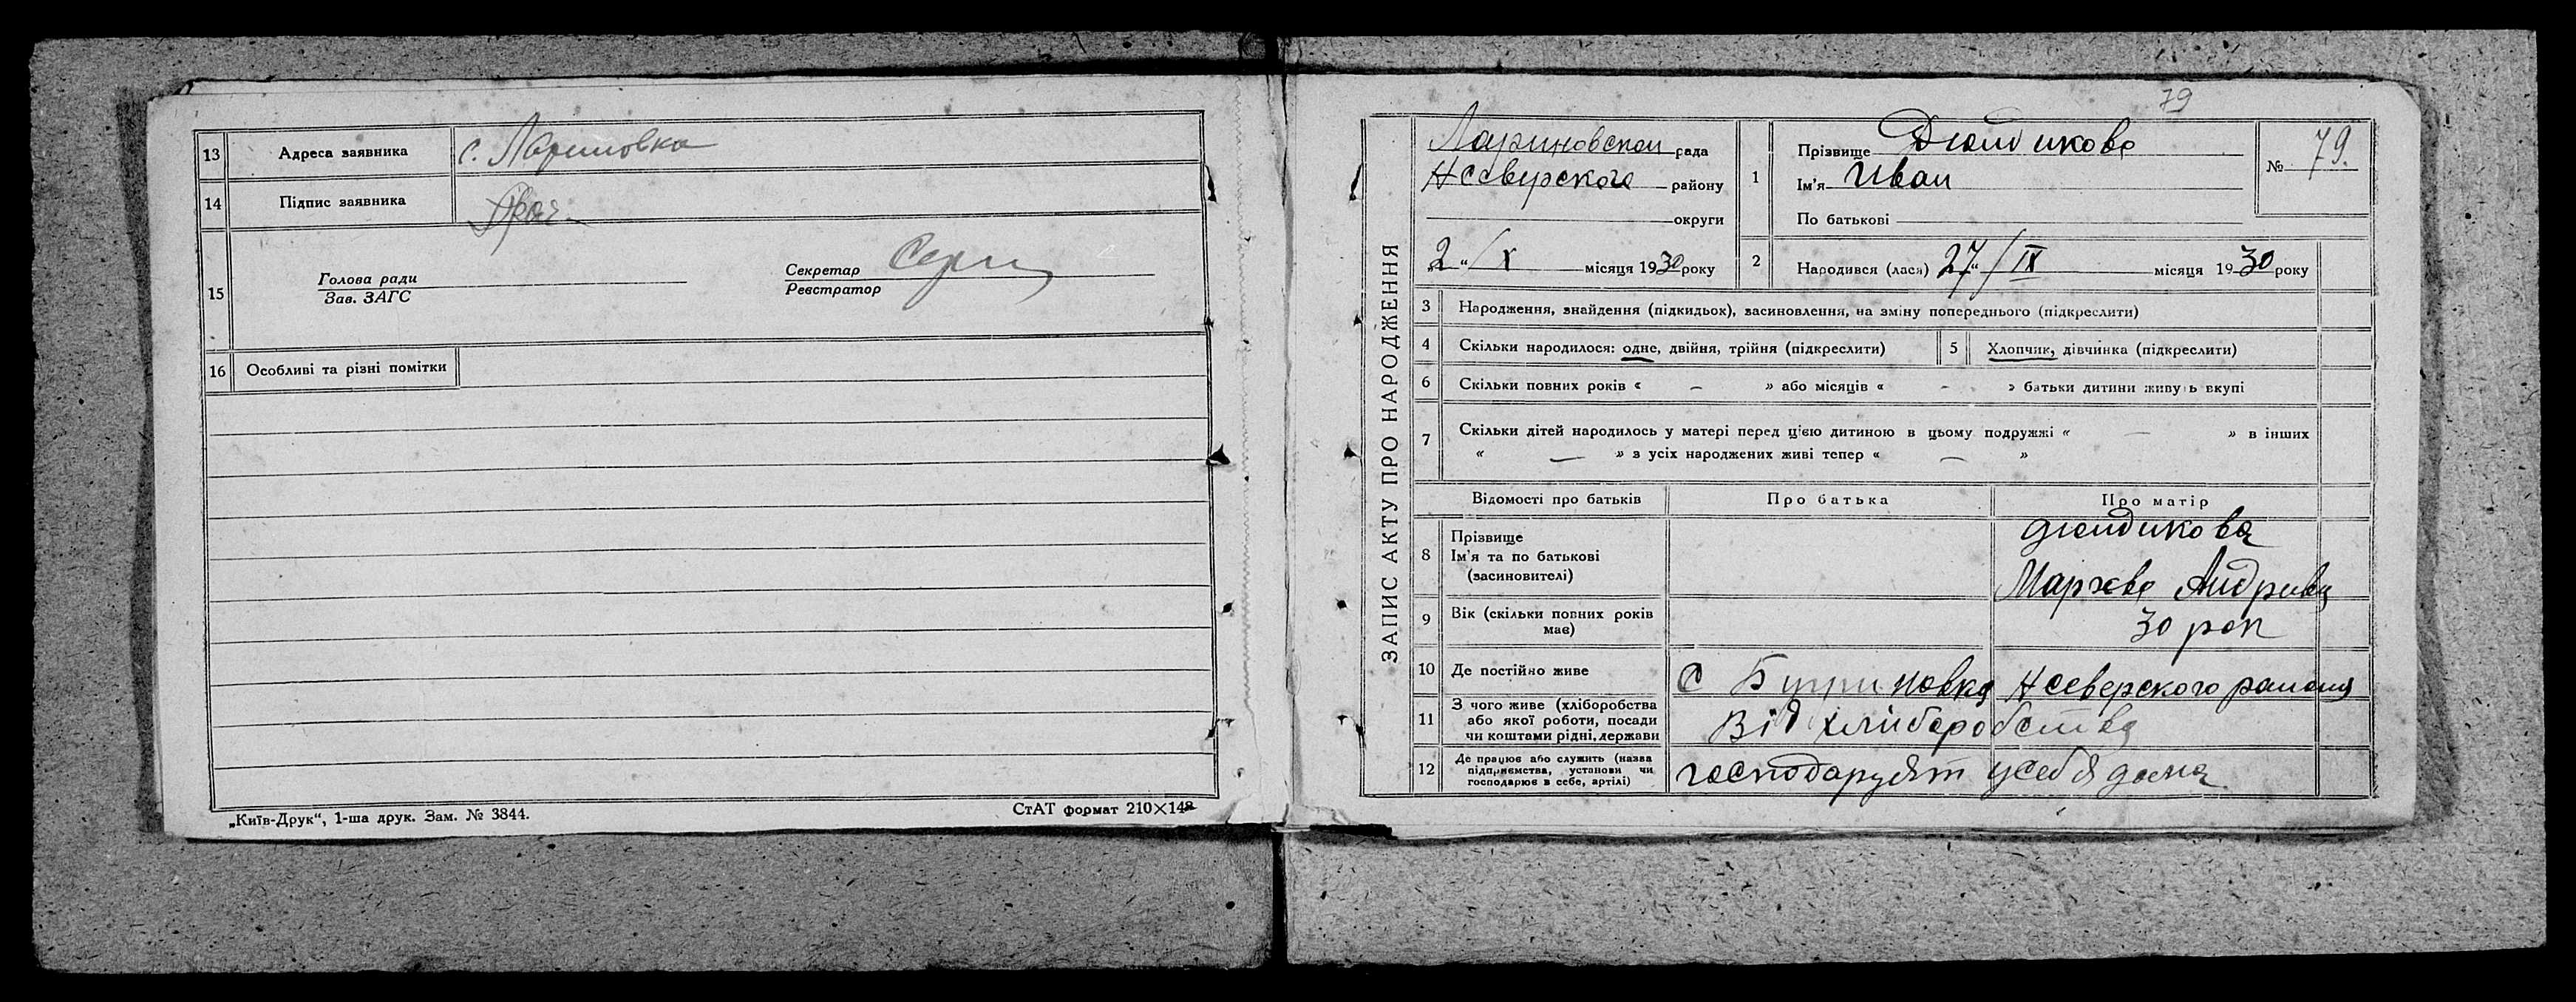 13 Адреса заявника с. Лариновка
14 Підпис заявника
15 Голова ради
Зав. ЗАГС
Секретар
Реєстратор
16 Особливі та різні помітки
„Київ-Друк“, 1-ша друк. Зам. № 3844.
СтАТ формат 210×148
79
ЗАПИС АКТУ ПРО НАРОДЖЕННЯ
Лариновской рада
Нсеверского району
округи
„2“/X місяця 1930 року
1 Прізвище Дюндикова
Ім’я Иван
По батькові
№ 79.
2 Народився (лася) 27“/IX місяця 1930 року
3 Народження, знайдення (підкидьок), засиновлення, на зміну попереднього (підкреслити)
4 Скільки народилося: одне, двійня, трійня (підкреслити)
5 Хлопчик, дівчинка (підкреслити)
6 Скільки повних років « – » або місяців « – » батьки дитини живуть вкупі
7 Скільки дітей народилось у матері перед цією дитиною в цьому подружжі « — » в інших
« — » з усіх народжених живі тепер « — »
Відомості про батьків Про батька Про матір
8 Прізвище
Ім’я та по батькові
(засиновителі)
дюндикова
Андривн
9 Вік (скільки повних років
має)
30 рок
10 Де постійно живе С Нсеверского района
11 З чого живе (хліборобства
або якої роботи, посади
чи коштами рідні, держави
Від хліборобства
12 Де працює або служить (назва
підприємства, установи чи
господарює в себе, артілі)
господарует усебя дома